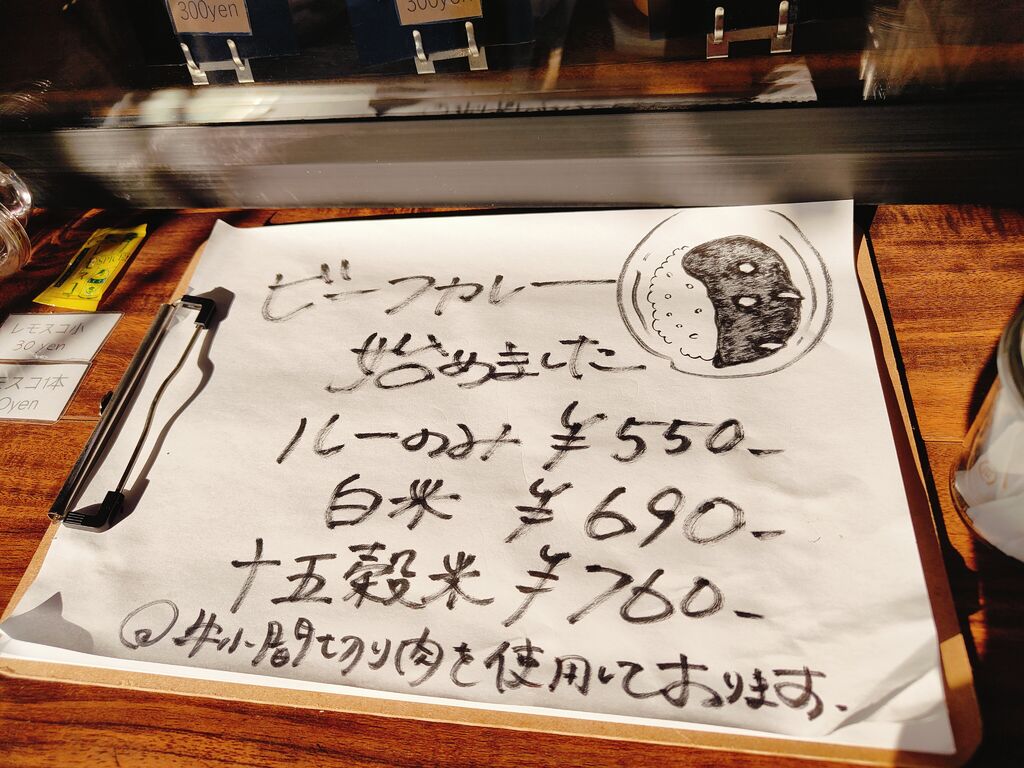 300yen
300yen
ビーフカレー
始めました
ルーのみ ¥550-
白米 ¥690-
十五穀米 ¥760-
牛小間切り肉を使用しております.
レモスコ小
30 yen
モスコ1本
0yen